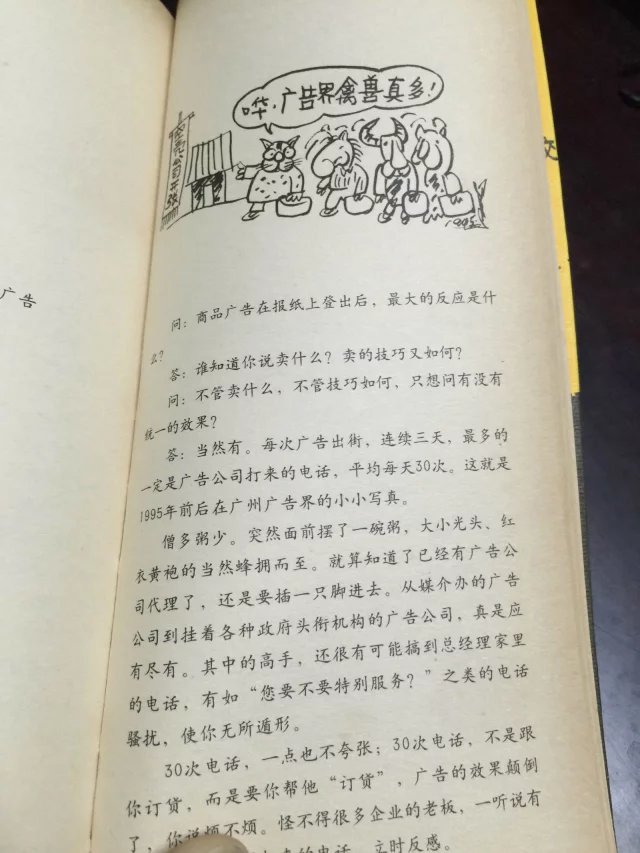 哗，广告界禽兽真多！
公司开张
1995
广告
问：商品广告在报纸上登出后，最大的反应是什
么？
答：谁知道你说卖什么？卖的技巧又如何？
问：不管卖什么，不管技巧如何，只想问有没有
统一的效果？
答：当然有。每次广告出街，连续三天，最多的
一定是广告公司打来的电话，平均每天30次。这就是
1995年前后在广州广告界的小小写真。
僧多粥少。突然面前摆了一碗粥，大小光头、红
衣黄袍的当然蜂拥而至。就算知道了已经有广告公
司代理了，还是要插一只脚进去。从媒介办的广告
公司到挂着各种政府头衔机构的广告公司，真是应
有尽有。其中的高手，还很有可能搞到总经理家里
的电话，有如“您要不要特别服务？”之类的电话
骚扰，使你无所遁形。
30次电话，一点也不夸张；30次电话，不是跟
你订货，而是要你帮他“订货”，广告的效果颠倒
了，你说烦不烦。怪不得很多企业的老板，一听说有
的电话，立时反感。